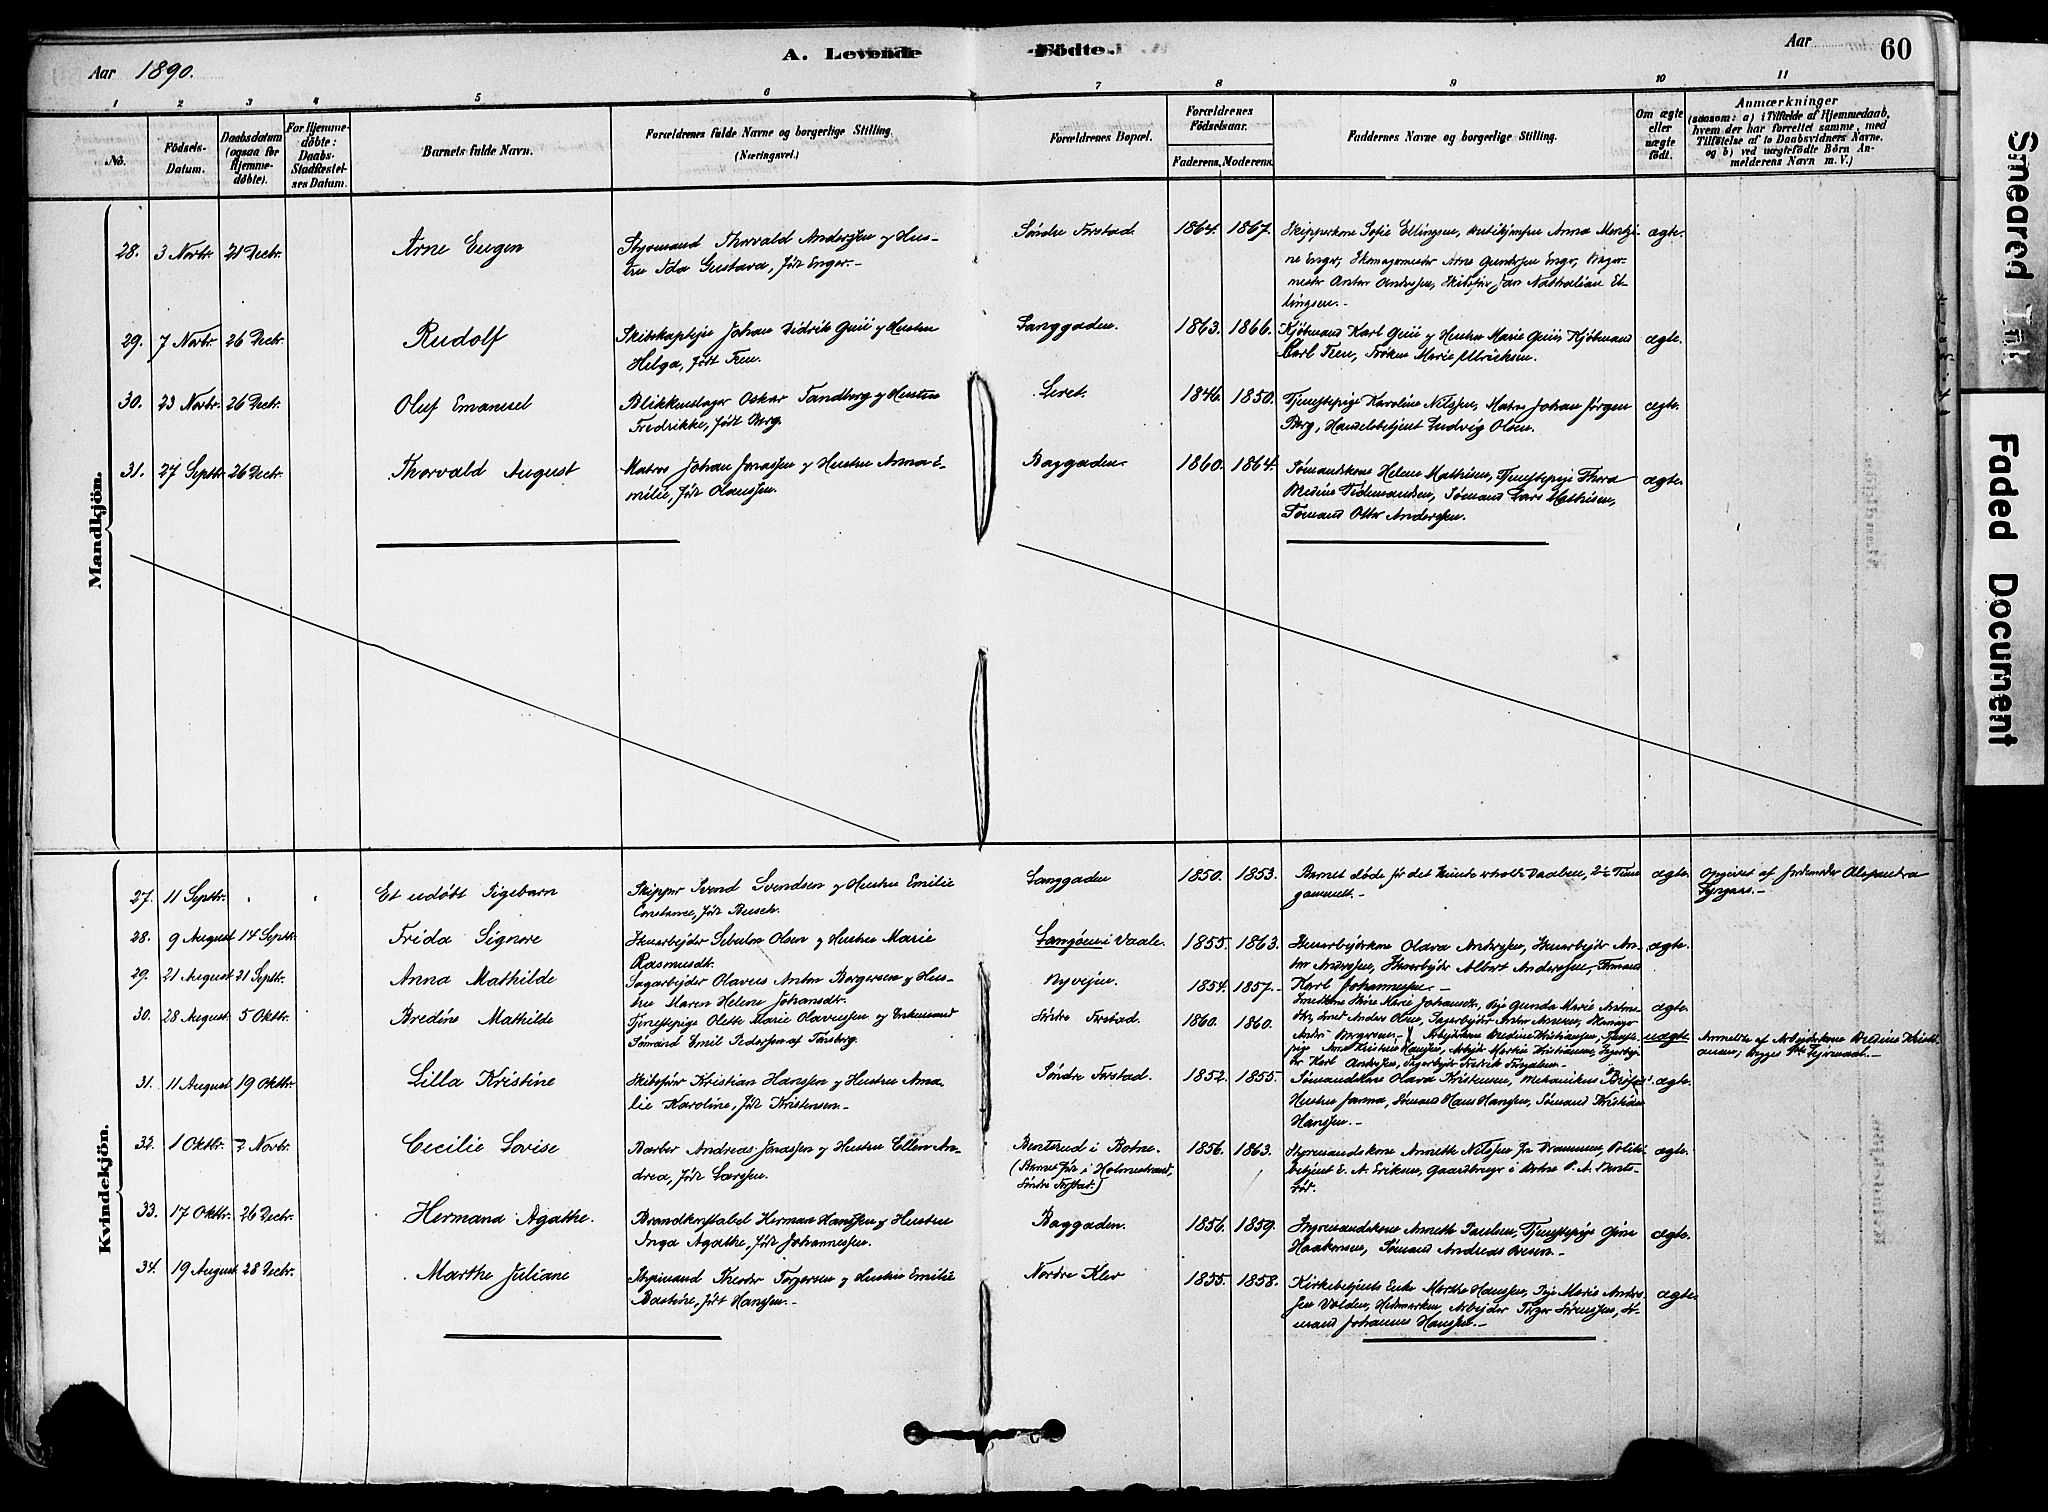 Aar 1890.
A. Levende Födte.
Aar
60
1 2 3 4 5 6 7 8 9 10 11
No.
Födsels-
Datum.
Daabsdatum
(ogsaa for
Hjemme-
døbte).
For Hjemme-
døbte:
Daabs-
Stadfæstel-
ses Datum.
Barnets fulde Navn.
Forældrenes fulde Navne og borgerlige Stilling.
(Næringsvei.)
Forældrenes Bopæl.
Forældrenes
Födselsaar.
Faderens. Moderens.
Faddernes Navne og borgerlige Stilling.
Om ægte
eller
uægte
födt.
Anmærkninger
(saasom: a) i Tilfælde af Hjemmedaab,
hvem der har forrettet samme, med
Tilföielse af to Daabsvidners Navne.
og b) ved uægtefödte Börn An-
melderens Navn m. V.)
Mandkjön.
28. 3 Novbr. 21 Decbr.
Arne Eugen
Styrmand Thorvald Andersen og Hus-
tru Ida Gustava, født Enger.-
Søndre Forstad. 1864. 1867.
Skipperkone Sofie Ellingsen, Anna
ne Enger, Skomagermester Arne Gundersen Enger, Bager-
mester Anton Andersen, Skibsfør. Jan Nathalian El-
lingsen.-
ægte.
29. 7 Novbr. 26 Decbr.
Rudolf
Skibskaptejn Johan Didrik og Hustru
Helga, født
Langgaden. 1863. 1866.
Kjøbmand Karl og Hustru Marie Kjøbmand
Carl Frøken Marie Ulriksen.
ægte.
30. 23 Novbr. 26 Decbr.
Oluf Emanuel
Blikkenslager Oskar Sandberg og Hustru
Fredrikke, født Berg.
Leret. 1846. 1850.
Tjenestepige Karoline Nilsen, Matros Johan Jørgen
Berg, Handelsbetjent Ludvig Olsen.
ægte.
31. 27 Septbr. 26 Decbr.
Thorvald August
Matros Johan Jonassen og Hustru Anna E-
milie, født Olaussen.
Baggaden. 1860. 1864.
Sømandskone Helene Mathisen, Tjenestepige Thora
Bredine Tidemandsen, Sømand Lars Mathisen,
Sømand Otto Andersen.
ægte.
Kvindekjön.
27. 11 Septbr.
Et udøbt Pigebarn
Skipper Svend Svendsen og Hustru Emilie
Constance, født Busch.
Langgaden 1850. 1853.
Barnet døde før det kunde erholde Daaben, 2½ Time
gammelt.-
ægte.
Opgivet af Jordemoder Alexandra
28. 9 August 14 Septbr.
Frida Signore
Skuarbejder Olsen og Hustru Marie
Rasmusdt.
Langøen i Vaale. 1855. 1863.
Skuarbejderkone Olava Andersen, Skuarbejder An-
ton Andersen, Skuarbejder Albert Andersen, Sømand
Karl Johannessen.-
ægte.
29. 21 August 21 Septbr.
Anna Mathilde
Sagarbejder Olaves Anton Borgersen og Hus-
tru Maren Helene Johansdt.
Nyvejen. 1854. 1857.
Smedkone Marie Johansdt., Pige Gunda Marie
Smed Anders Olsen, Sagarbejder Anton
ægte.
30. 28 August. 5 Oktbr.
Bredine Mathilde
Tjenestepige Olette Marie Olavessen og Enkemand
Sømand Emil Pedersen af Tønsberg.
Søndre Forstad. 1860. 1860.
Arbejdskone Bredine Kristiansen, Tjeneste-
pige Anne Kristine Hansen, Arbejder Martin Kristiansen, Sagarbej-
der Karl Andersen, Sagarbejder Fredrik
uægte.
Anmeldt af Arbejdskone Bredine Kristi-
ansen, Begges Lejermaal.-
31. 11 August 19 Oktbr.
Lilla Kristine
Skibsfører Kristian Hansen og Hustru Ama-
lie Karoline, født Kristensen.-
Søndre Forstad. 1852. 1855.
Sømandskone Olava Kristensen, Mekanikus
Hustru Sømand Hans Hansen, Sømand Kristian
Hansen.-
ægte.
32. 1 Oktbr. 2 Novbr.
Cecilie Lovise
Barber Andreas Jonassen og Hustru Ellen An-
drea, født Larsen.
Bentsrud i Botne.
(Barnet født i Holmestrand,
Søndre Forstad.)
1856. 1863.
Styrmandskone Annette Nilsen fra Drammen, Politi-
betjent E. A. Eriksen, Gaardbruger i Botne P. A. Bents-
rød.
ægte.
33. 17 Oktbr. 26 Decbr.
Hermana Agathe.
Brandkonstabel Herman Hansen og Hustru
Inga Agathe, født Johannessen.
Baggaden. 1856. 1859.
Styrmandskone Annette Paulsen, Tjenestepige
Haakonsen, Sømand Andreas
ægte.
34. 19 August 28 Decbr.
Marthe Juliane
Styrmand Theodor Torgersen og Hustru Emilie
Bastine, født Hansen.-
Nordre Klev 1855. 1858.
Kirkebetjents Enke Marthe Hansen, Pige Marie Ander-
sen Volden, Hedmarken, Arbejder Sørensen, Sø-
mand Johannes Hansen.-
ægte.
Smeared Ink
Faded Document